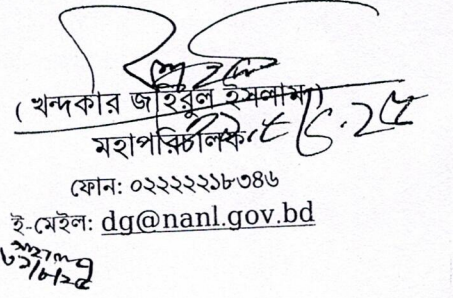 ( খন্দকার জহিরুল ইসলাম)
মহাপরিচালক
ফোন: ০২২২২২১৮৩৪৬
ই-মেইল: dg@nanl.gov.bd